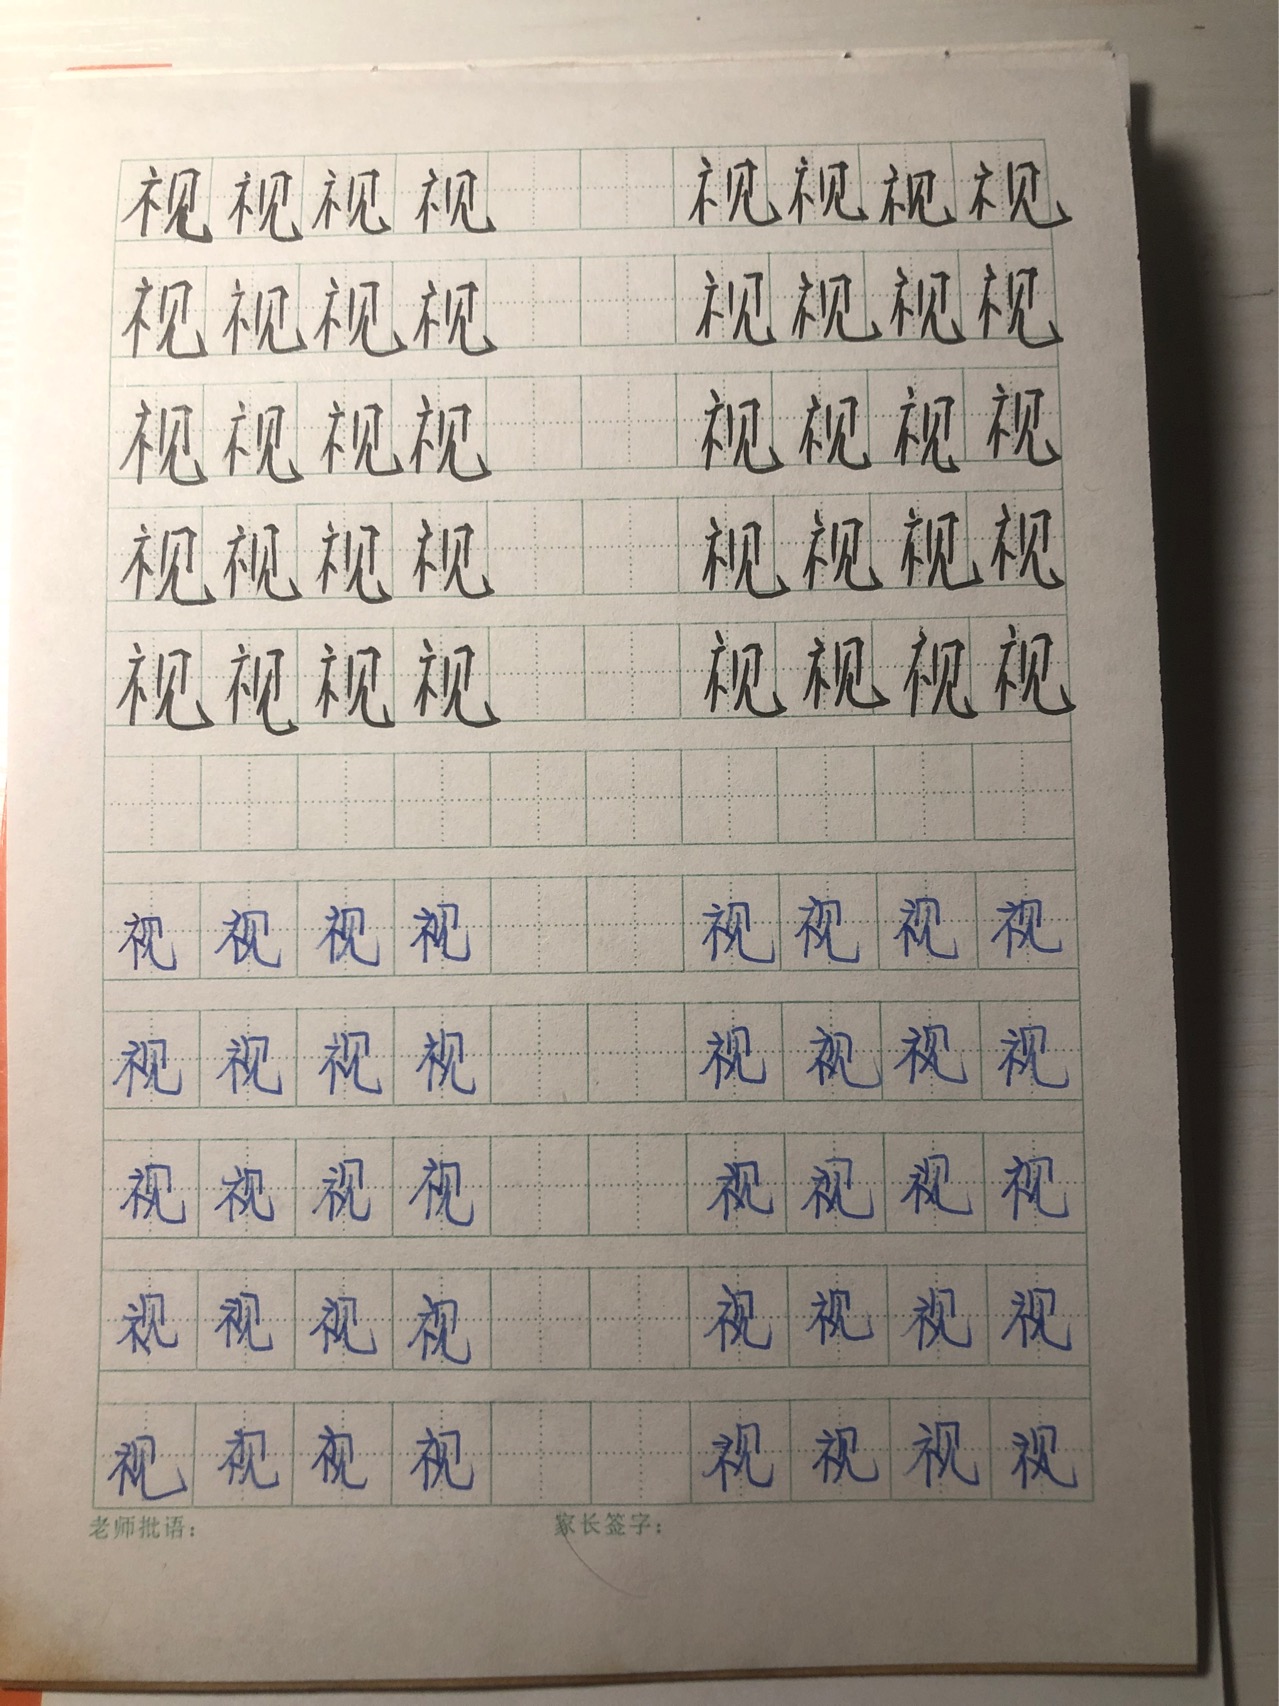 视视视视 视视视视
视视视视 视视视视
视视视视 视视视视
视视视视 视视视视
视视视视 视视视视
视视视视 视视视视
视视视视 视视视视
视视视视 视视视视
视视视视 视视视视
视视视视 视视视视
老师批语： 家长签字：